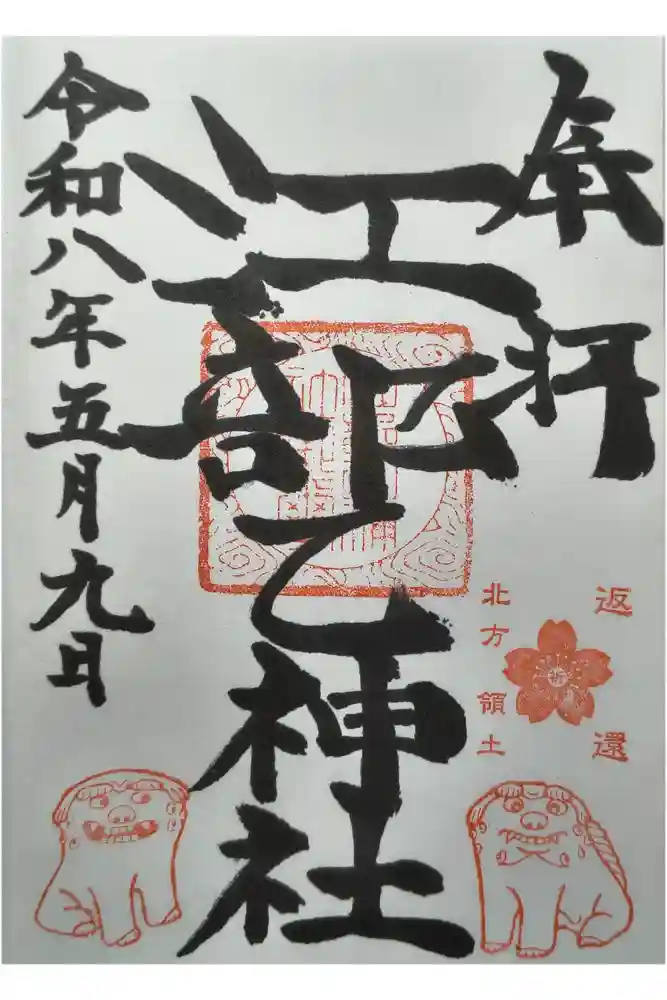 奉拝
江部乙神社
令和八年五月九日
北方領土
返還
祈